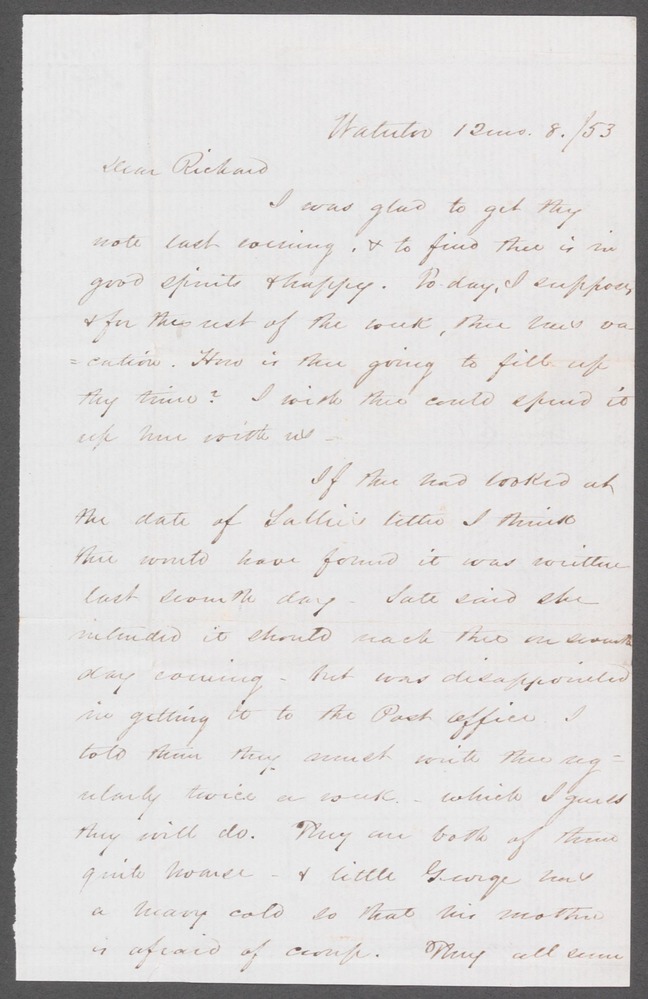 12mo. 8./53
Dear Richard
I was glad to get thy
note last evening, & to find thee is in
good spirits & happy. To-day, I suppose,
& for the rest of the week, thee has va
=cation. How is thee going to fill up
thy time? I wish thee could spend it
up here with us -
If thee had looked at
the date of Sallie's letter I think
thee would have found it was written
last seventh day - Sate said she
intended it should reach thee on seventh
day evening - but was disappointed
in getting it to the Post office. I
told them they must write thee reg=
ularly twice a week. - which I guess
they will do. They are both of them
quite hoarse - & little George has
a heavy cold so that his mother
is afraid of croup. They all seem